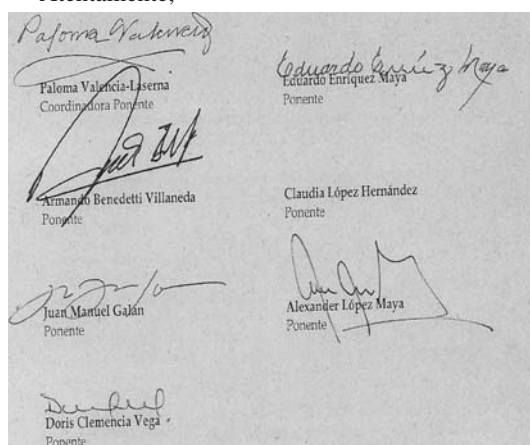 Atentamente,
Paloma Valencia
Paloma Valencia-Laserna
Coordinadora Ponente
Eduardo Enríquez Maya
Eduardo Enríquez Maya
Ponente
Armando Benedetti Villaneda
Ponente
Claudia López Hernández
Ponente
Juan Manuel Galán
Ponente
Alexander López Maya
Ponente
Doris Clemencia Vega
Ponente